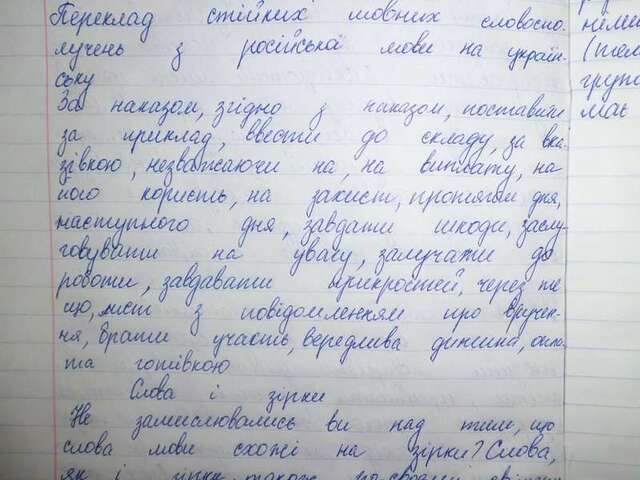 Переклад стійких мовних словоспо-
лучень з російської мови на україн-
ську
За наказом, згідно з наказом, поставити
за приклад, ввести до складу, за вка-
зівкою, незважаючи на, на виплату, на
його користь, на захист, протягом дня,
наступного дня, завдати шкоди, заслу-
говувати на увагу, залучати до
роботи, завдавати прикростей, через те
що, лист з повідомленням про вручен-
ня, брати участь, вередлива дитина, опла-
та готівкою
Слова і зірки
Не замислювались ви над тим, що
слова мови схожі на зірки? Слова,
як і зірки, також по-своєму
неме
(том
груп
має